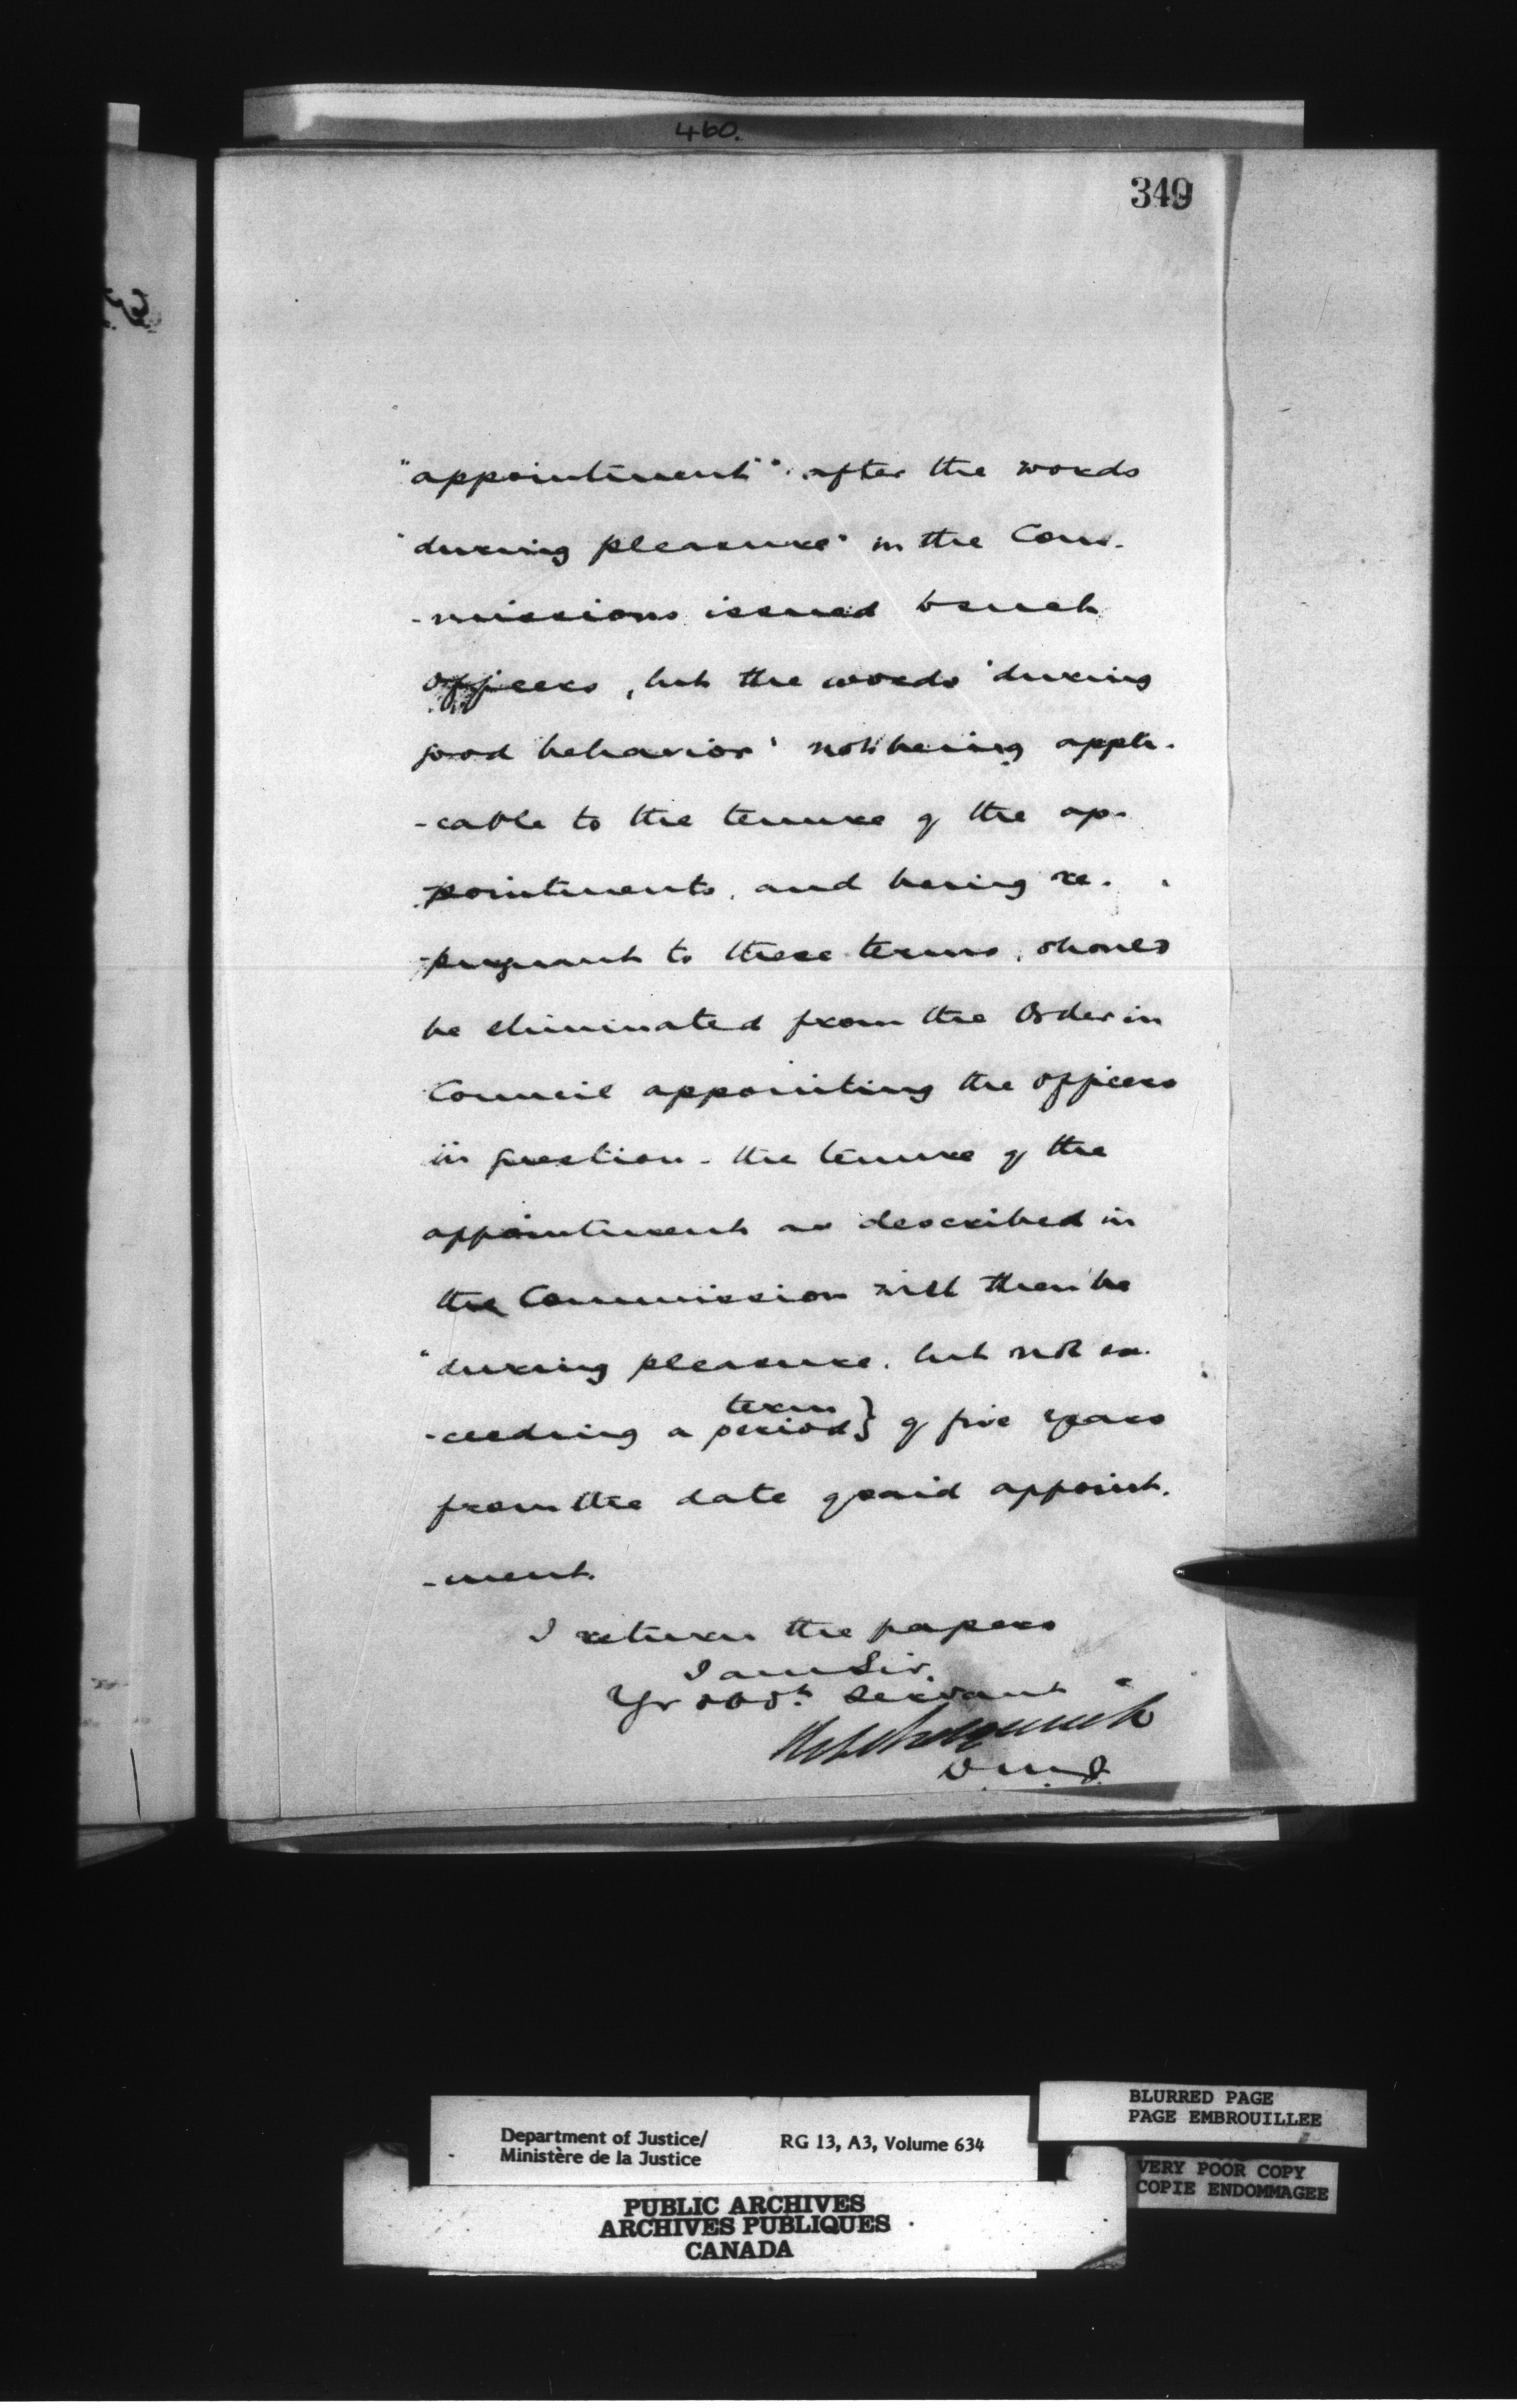 460.
349
"appointment" after the words
"during pleasure" in the Com-
-missions issued to such
officers, but the words 'during
good behavior' not being appli-
-cable to the tenure of the ap-
-pointments, and being re-
-pugnant to these terms, should
be eliminated from the Order in
Council appointing the officers
in question - the tenure of the
appointment as described in
the Commission will then be
"during pleasure, but not ex-
term
-ceeding a period} of five years
from the date of said appoint-
-ment.
I return the papers
I am Sir,
Yr obdt servant
D.M.J.
Department of Justice/
Ministère de la Justice
RG 13, A3, Volume 634
BLURRED PAGE
PAGE EMBROUILLEE
VERY POOR COPY
COPIE ENDOMMAGEE
PUBLIC ARCHIVES
ARCHIVES PUBLIQUES
CANADA